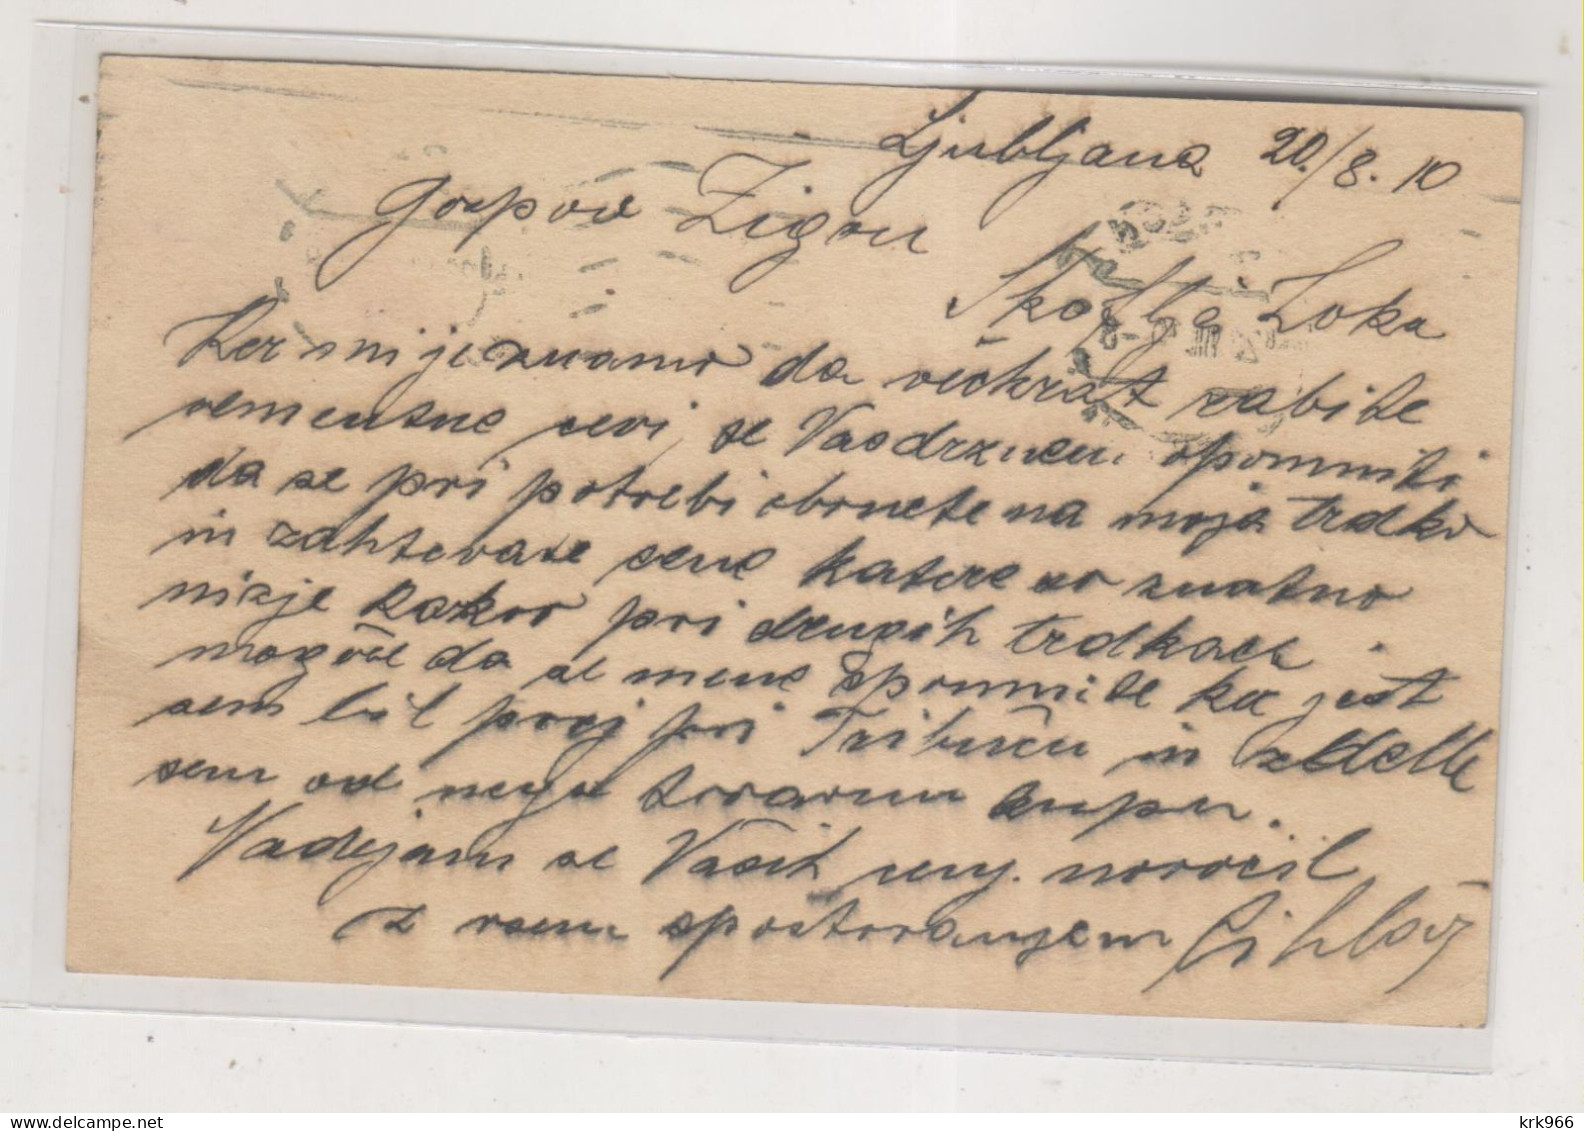 Ljubljana 20./8. 10
Gospod Zigon
Skofja Loka
Ker mi je znamo da večkrat rabite
cementne cevi, se Vas drznem opomniti
da se pri potrebi obrnete na moja trdko
in zahtevate cene katere so znatno
nizje kakor pri drugih trdkach
mogoče da se mene spomnite ker jest
sem bil prej pri Tribuču in
sem od njega tovarnu kupu.
Nadejam se Vaših cenj. naročil
z vsem spostovanjem Cihlař
krk966